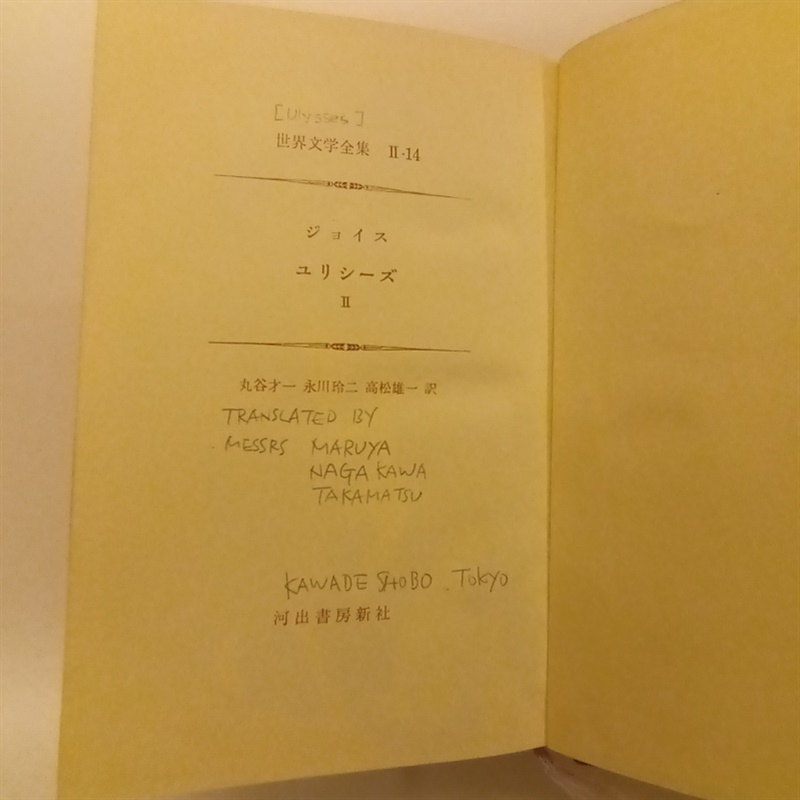 [Ulysses]
世界文学全集 II-14
ジョイス
ユリシーズ
II
丸谷才一 永川玲二 高松雄一 訳
TRANSLATED BY
MESSRS MARUYA
NAGAKAWA
TAKAMATSU
KAWADE SHOBO. TOKYO
河出書房新社